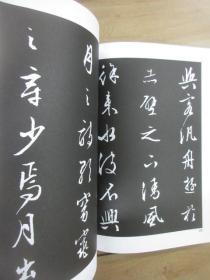 與客汎舟遊於
赤壁之下清風
徐來水波不興
月之詩歌窈窕
之章少焉月出